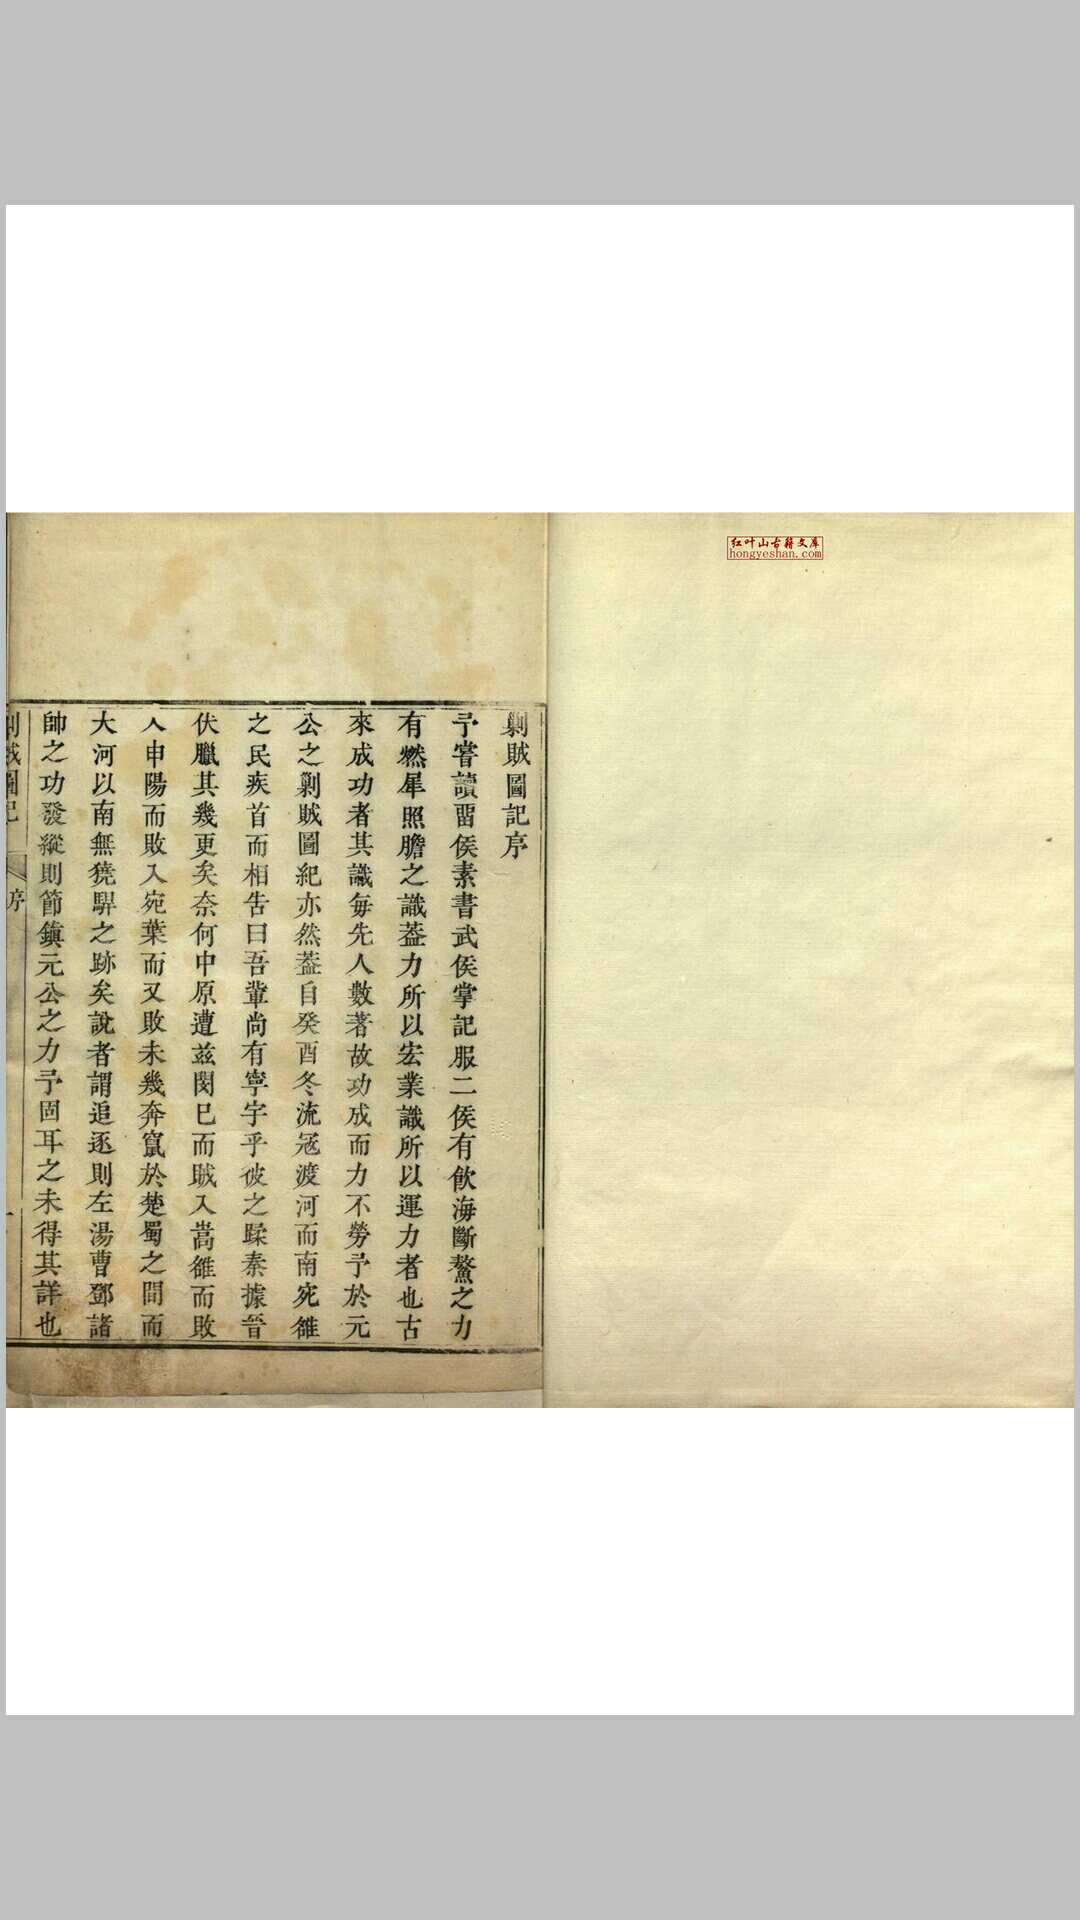 红叶山古籍文库
hongyeshan.com
剿賊圖記序
予嘗讀畱侯素書武侯掌記服二侯有飲海斷鰲之力
有燃犀照膽之識葢力所以宏業識所以運力者也古
來成功者其識毎先人數著故功成而力不勞予於元
公之剿賊圖紀亦然葢自癸酉冬流冦渡河而南宛雒
之民疾首而相告曰吾輩尚有寧宇乎彼之蹂秦據晉
伏臘其幾更矣奈何中原遭兹閔巳而賊入嵩雒而敗
入申陽而敗入宛葉而又敗未幾奔竄於楚蜀之間而
大河以南無獟騂之跡矣說者謂追逐則左湯曹鄧諸
帥之功發縱則節鎮元公之力予固耳之未得其詳也
剿賊圖記
序
一